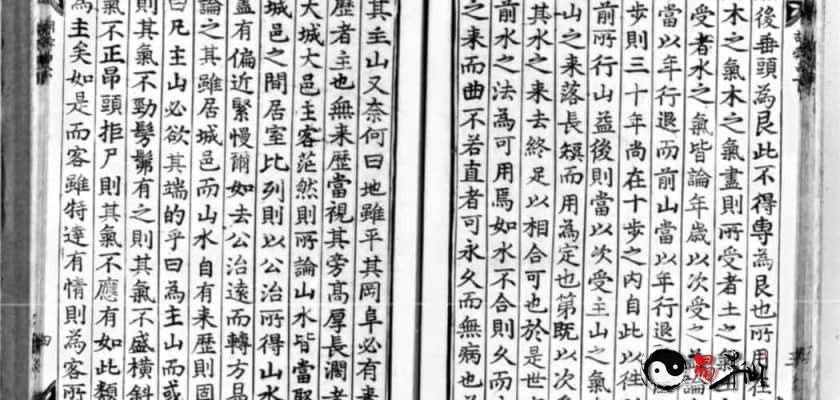 然後垂頭為艮此不得專為艮也所用在
木之氣木之氣盡則所受者土之氣
受者水之氣皆論年歲以次受之
當以年行退而前山當以年行退
步則三十年尚在十步之內自此以往
前所行山益後則當以次受主山之氣
山之來落長頫而用為定也第既以次受
其水之來去終足以相合可也於是世
前水之法為可用焉如水不合則久而
之來而曲不若直者可永久而無病也
其主山又奈何曰地雖平其岡阜必有來
歷者主也無来歷當視其旁高厚長濶者
大城大邑主客茫然則所論山水皆當堅
城邑之間居室比列則以公治所得山水
論之其雖居城邑而山水自有来歷則固
盡有偏近緊慢爾如去公治遠而轉方易
曰凡主山必欲其端的乎曰為主山而或
則其氣不勁髣髴有之則其氣不盛橫斜
氣不正昂頭拒尸則其氣不應有如此類
為主矣如是而客雖特達有情則為客所
四